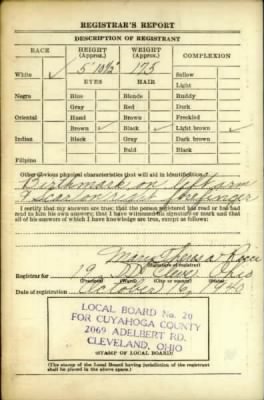 REGISTRAR'S REPORT
DESCRIPTION OF REGISTRANT
RACE HEIGHT (Approx.) WEIGHT (Approx.) COMPLEXION
White ✓ 5' 10½" 175 Sallow
EYES HAIR Light
Negro Blue Blonde Ruddy
Gray Red Dark
Oriental Hazel Brown Freckled
Brown ✓ Black ✓ Light brown ✓
Indian Black Gray Dark brown
Bald Black
Filipino
Other obvious physical characteristics that will aid in identification
Birthmark on left arm
Scar on forefinger
I certify that my answers are true; that the person registered has read or has had
read to him his own answers; that I have witnessed his signature or mark and that
all of his answers of which I have knowledge are true, except as follows:
Mary
(Signature of registrar)
Registrar for 19 Cleve. Ohio
(Precinct) (Ward) (City or county) (State)
Date of registration October 16, 1940
LOCAL BOARD No. 20
FOR CUYAHOGA COUNTY
2069 ADELBERT RD.
CLEVELAND, OHIO
(STAMP OF LOCAL BOARD)
(The stamp of the Local Board having jurisdiction of the registrant
shall be placed in the above space.)